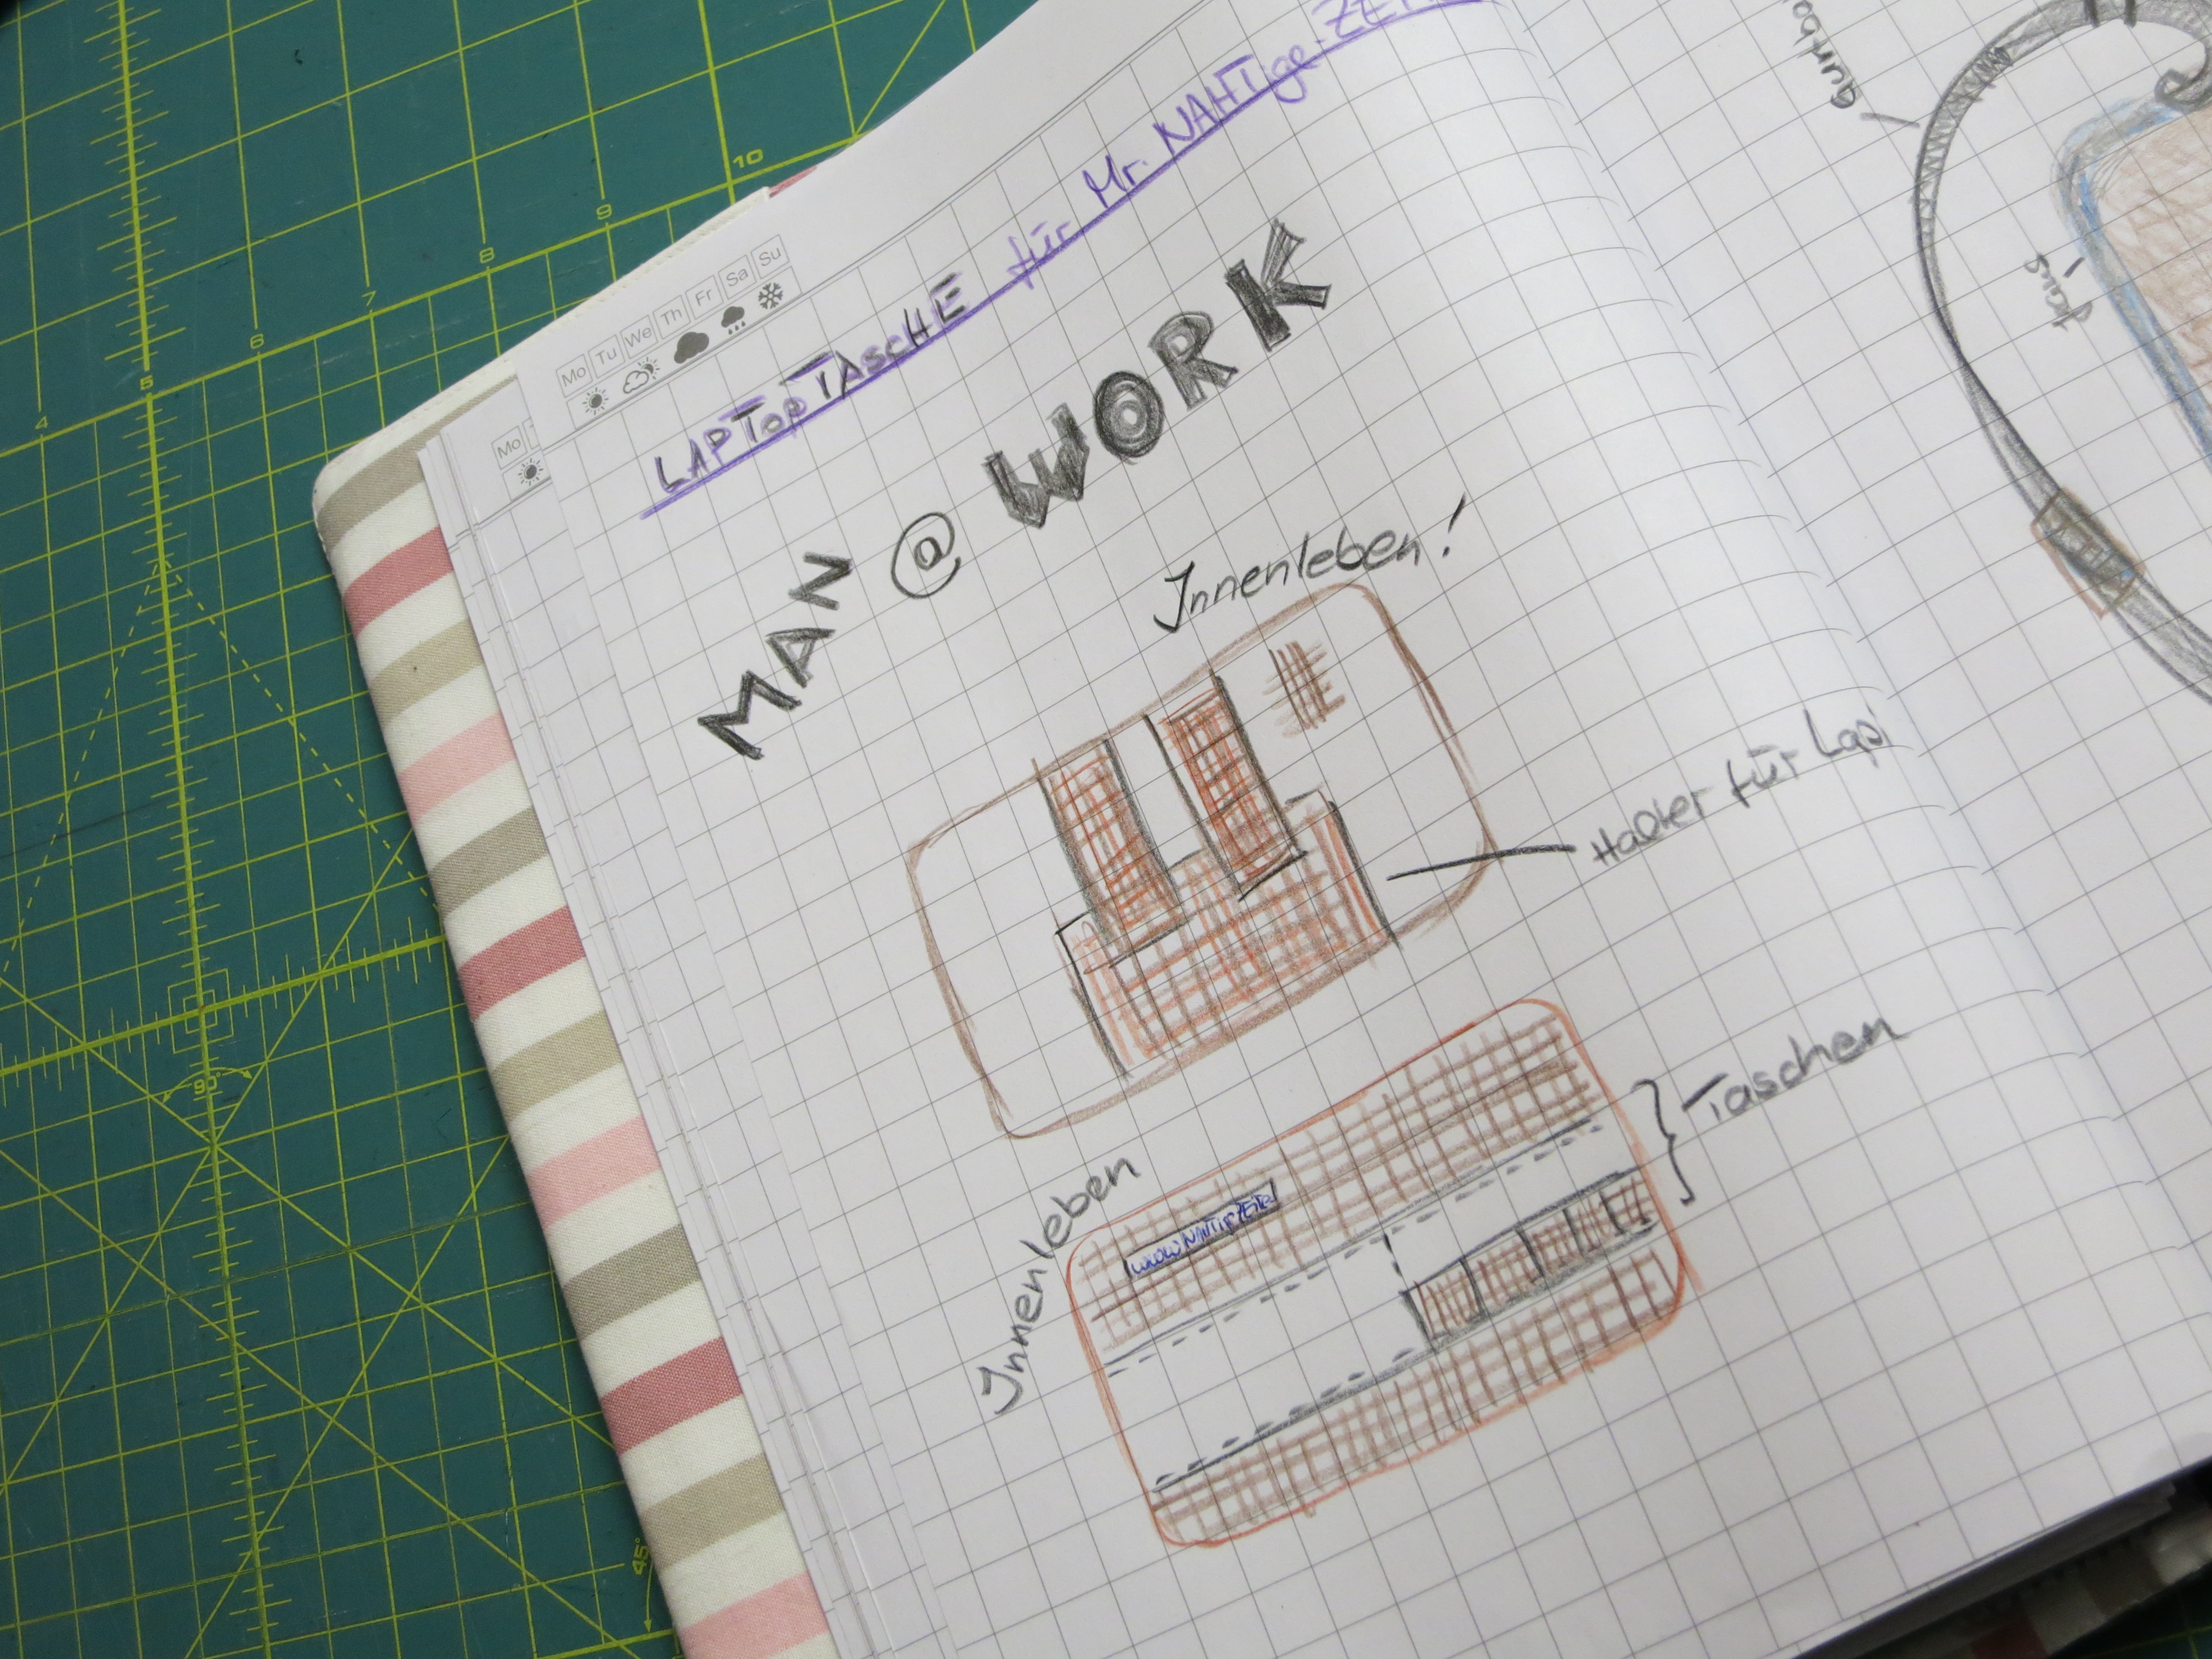 LAPTOPTASCHE für Mr. NAHTige-ZEIT
Mo Tu We Th Fr Sa Su
Mo
MAN @ WORK
Innenleben!
Halter für Lapi
Innenleben
Taschen
4 5 6 7 8 9 10
90°
45°